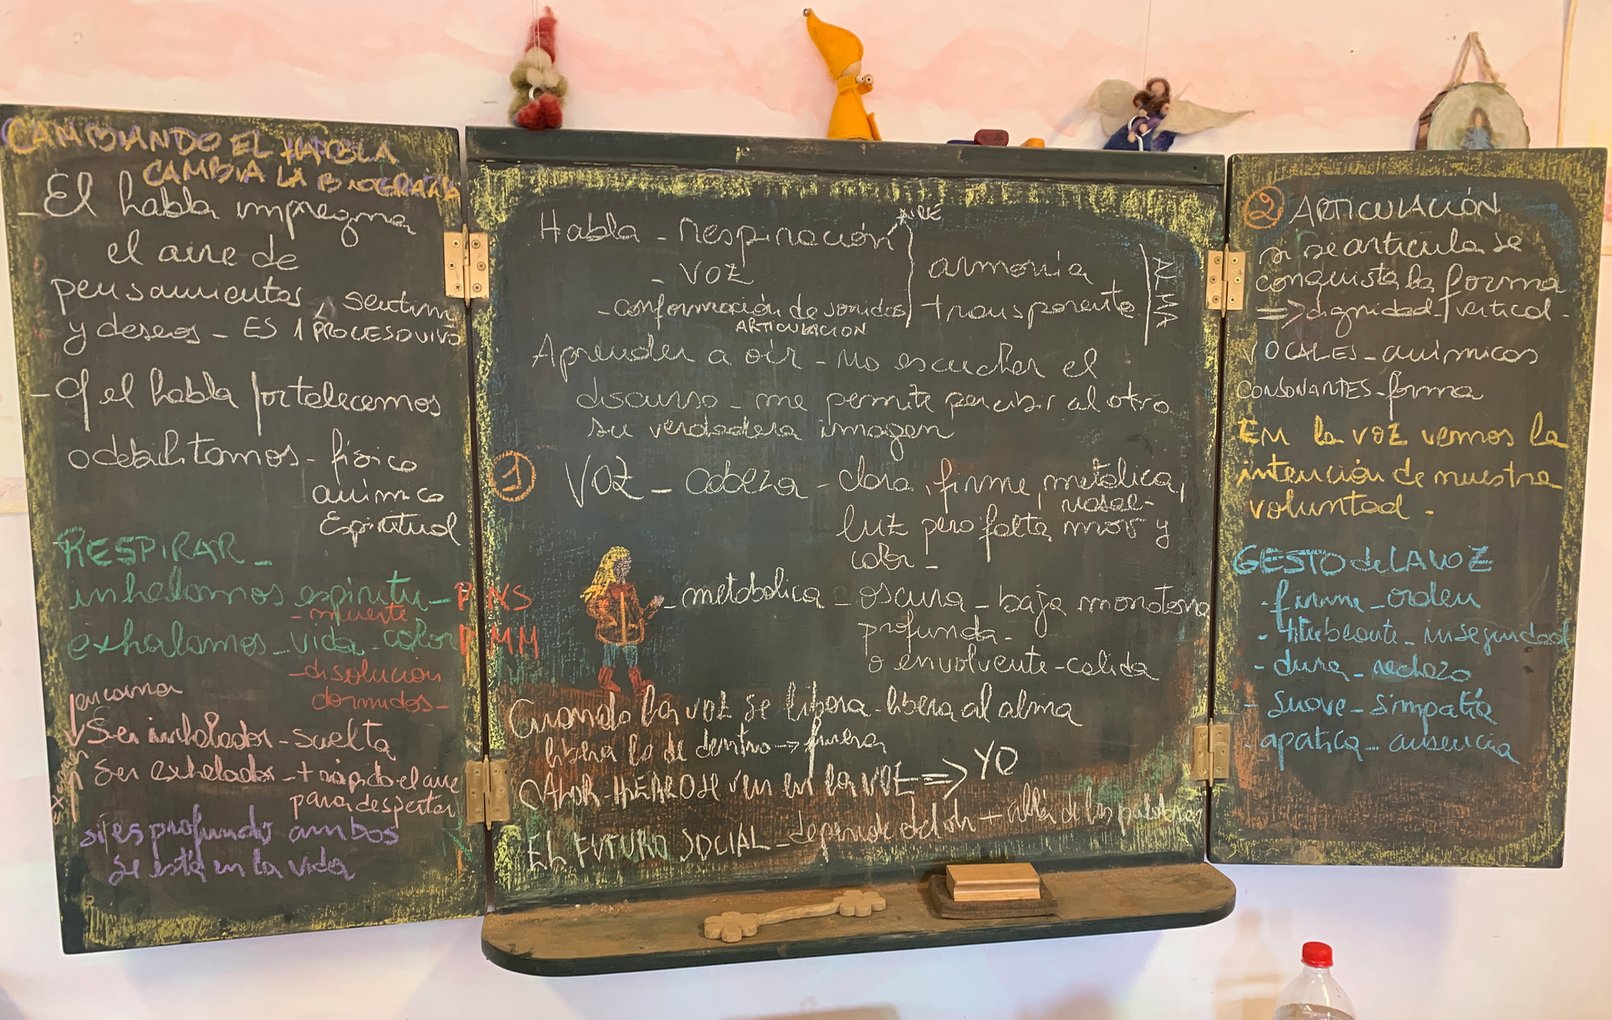 CAMBIANDO EL HABLA
CAMBIA LA BIOGRAFÍA
- El habla impregna
el aire de
pensamientos, sentim
y deseos - ES 1 PROCESO VIVO
- C/ el habla fortalecemos
o debilitamos - físico
anímico
Espiritual
RESPIRAR -
inhalamos espíritu - PNS
- muerte
exhalamos - vida - calor PMM
- disolución
dormidos -
encarna
Ser inhalador - suelta
Ser exhalador - + rápido el aire
para despertar
si es profundo ambos
se está en la vida
AIRE
Habla - Respiración
- VOZ
- conformación de sonidos
ARTICULACION
armonía
transparente
ALMA
Aprender a oír - no escuchar el
discurso - me permite percibir al otro
su verdadera imagen
1 VOZ - cabeza - clara, firme, metálica,
nasal -
luz pero falta mov y
calor -
- metabólica - oscura - baja monótona
profunda -
o envolvente - calida
Cuando la voz se libera - libera al alma
libera lo de dentro -> fuera
CALOR - se ven en la VOZ => YO
EL FUTURO SOCIAL - depende del oír + allá de las palabras
2 ARTICULACIÓN
si se articula se
conquista la forma
=> dignidad - vertical -
VOCALES - anímicos
CONSONANTES - forma
EN la voz vemos la
intención de nuestra
voluntad -
GESTO de LA VOZ
- firme - orden
- titubeante - inseguridad
- dura - rechazo
- suave - simpatía
- apatica - ausencia